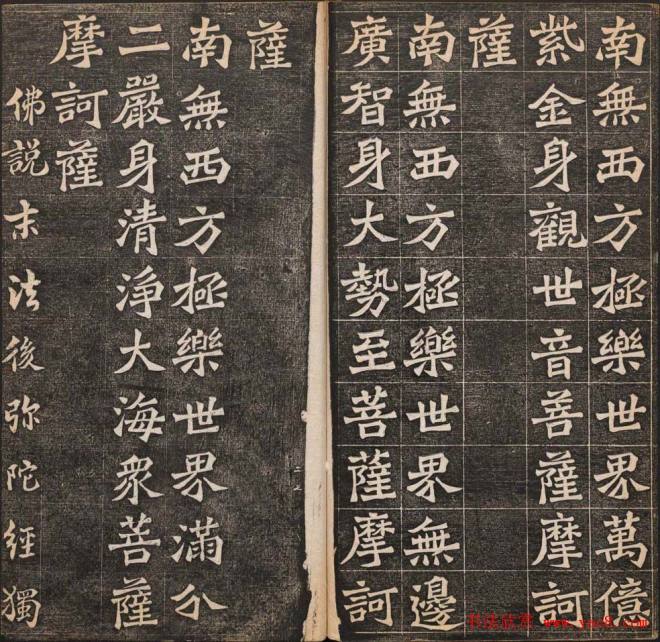 南無西方極樂世界萬億
紫金身觀世音菩薩摩訶
薩
南無西方極樂世界無邊
廣智身大勢至菩薩摩訶
薩
南無西方極樂世界滿分
二嚴身清淨大海眾菩薩
摩訶薩
佛說末法後弥陀經獨
书法欣赏